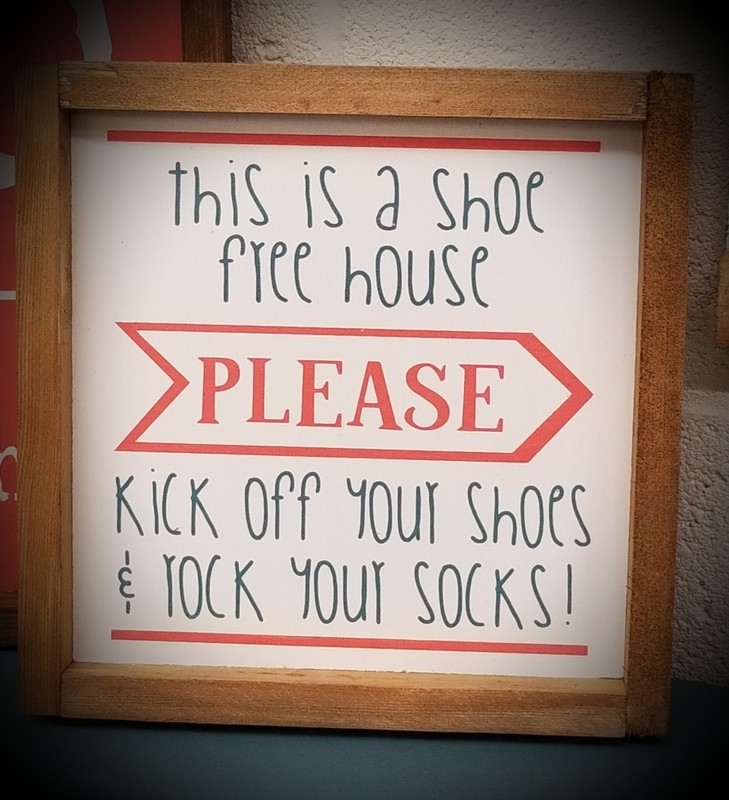 this is a shoe
free house
PLEASE
Kick off your shoes
& rock your socks!